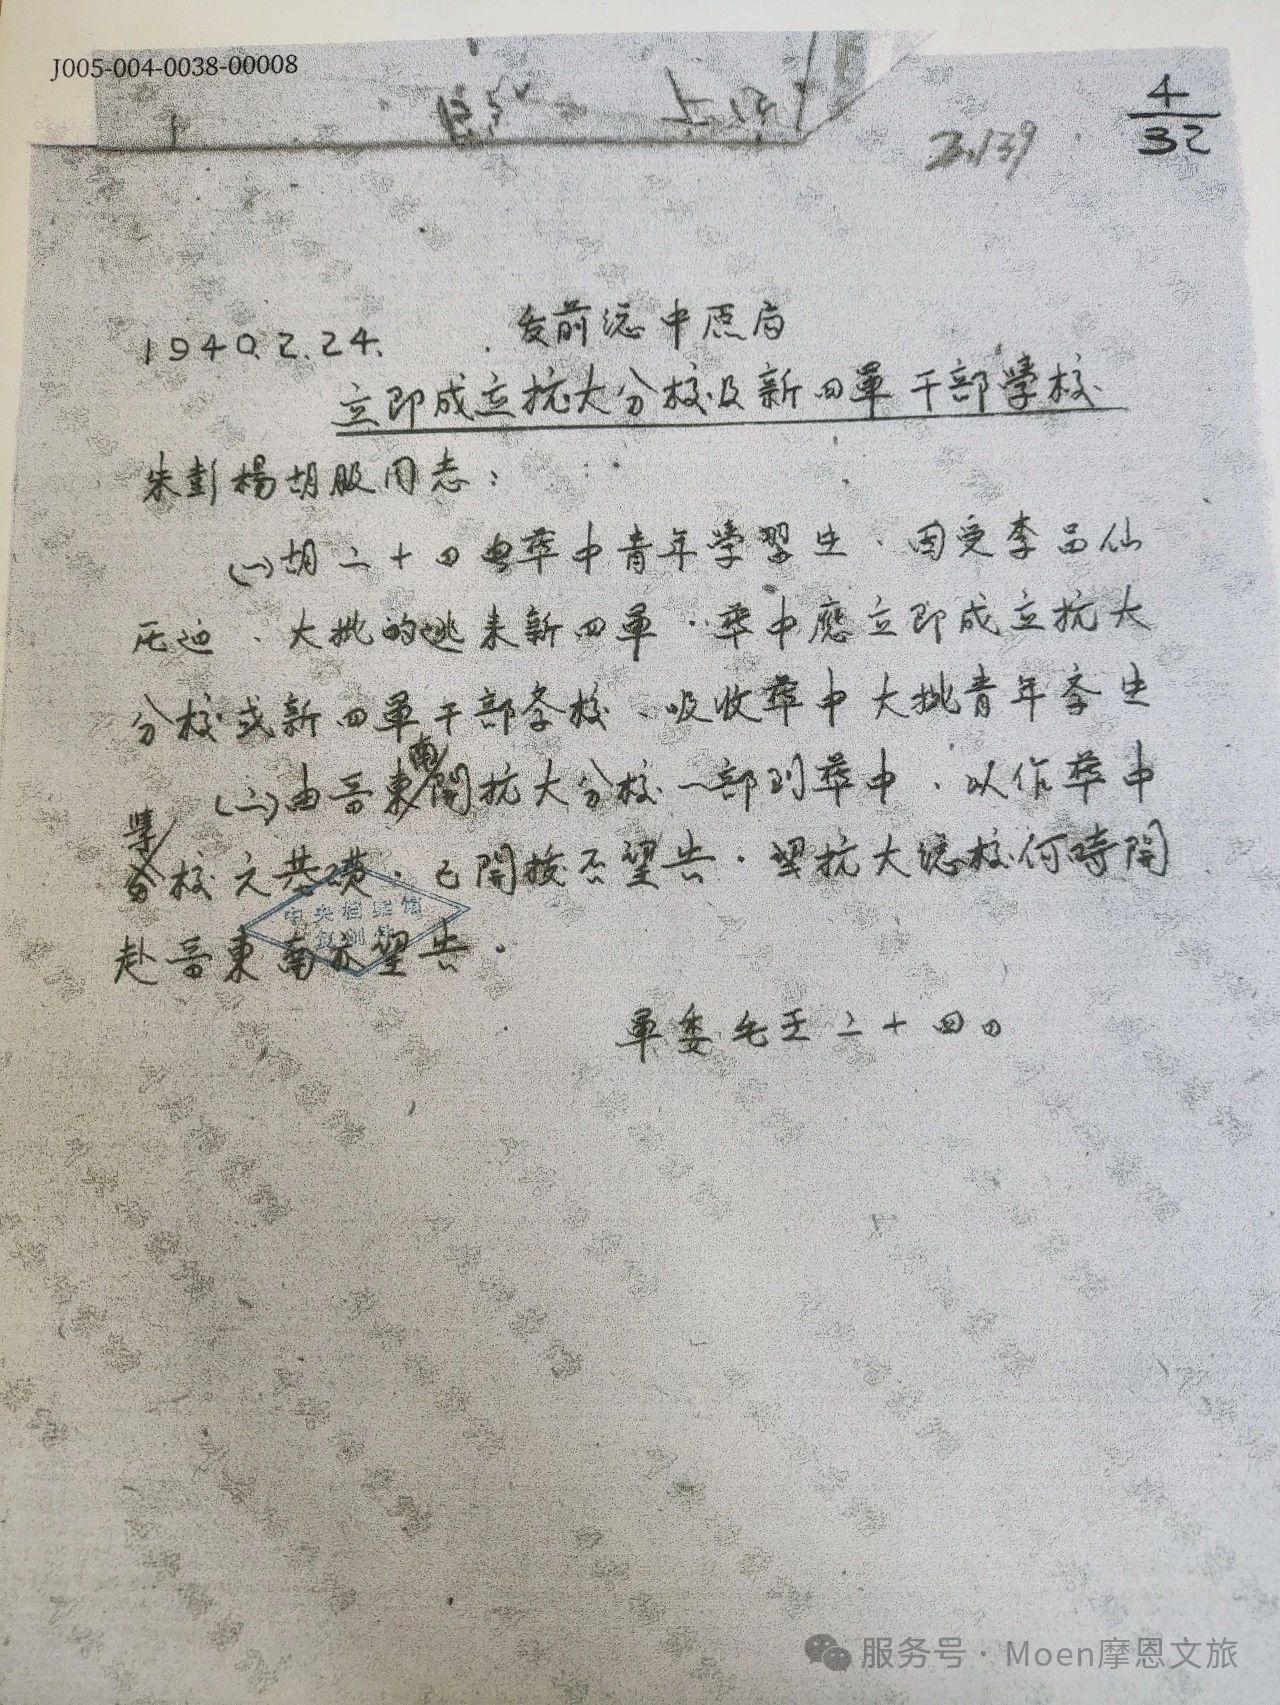 J005-004-0038-00008
4
32
2.139
1940.2.24.
发前总中原局
立即成立抗大分校及新四軍干部學校
朱彭楊胡服同志：
(一)胡二十四电華中青年學習生、因受李品仙
压迫、大批的逃来新四軍.華中應立即成立抗大
分校或新四軍干部学校、吸收華中大批青年学生
南
(二)由晋東開抗大分校一部到華中、以作華中
學
分校之基礎.已開拔否望告.望抗大总校何時開
赴晋東南亦望告.
中央档案馆
复制件
軍委毛王二十四日
服务号·Moen摩恩文旅